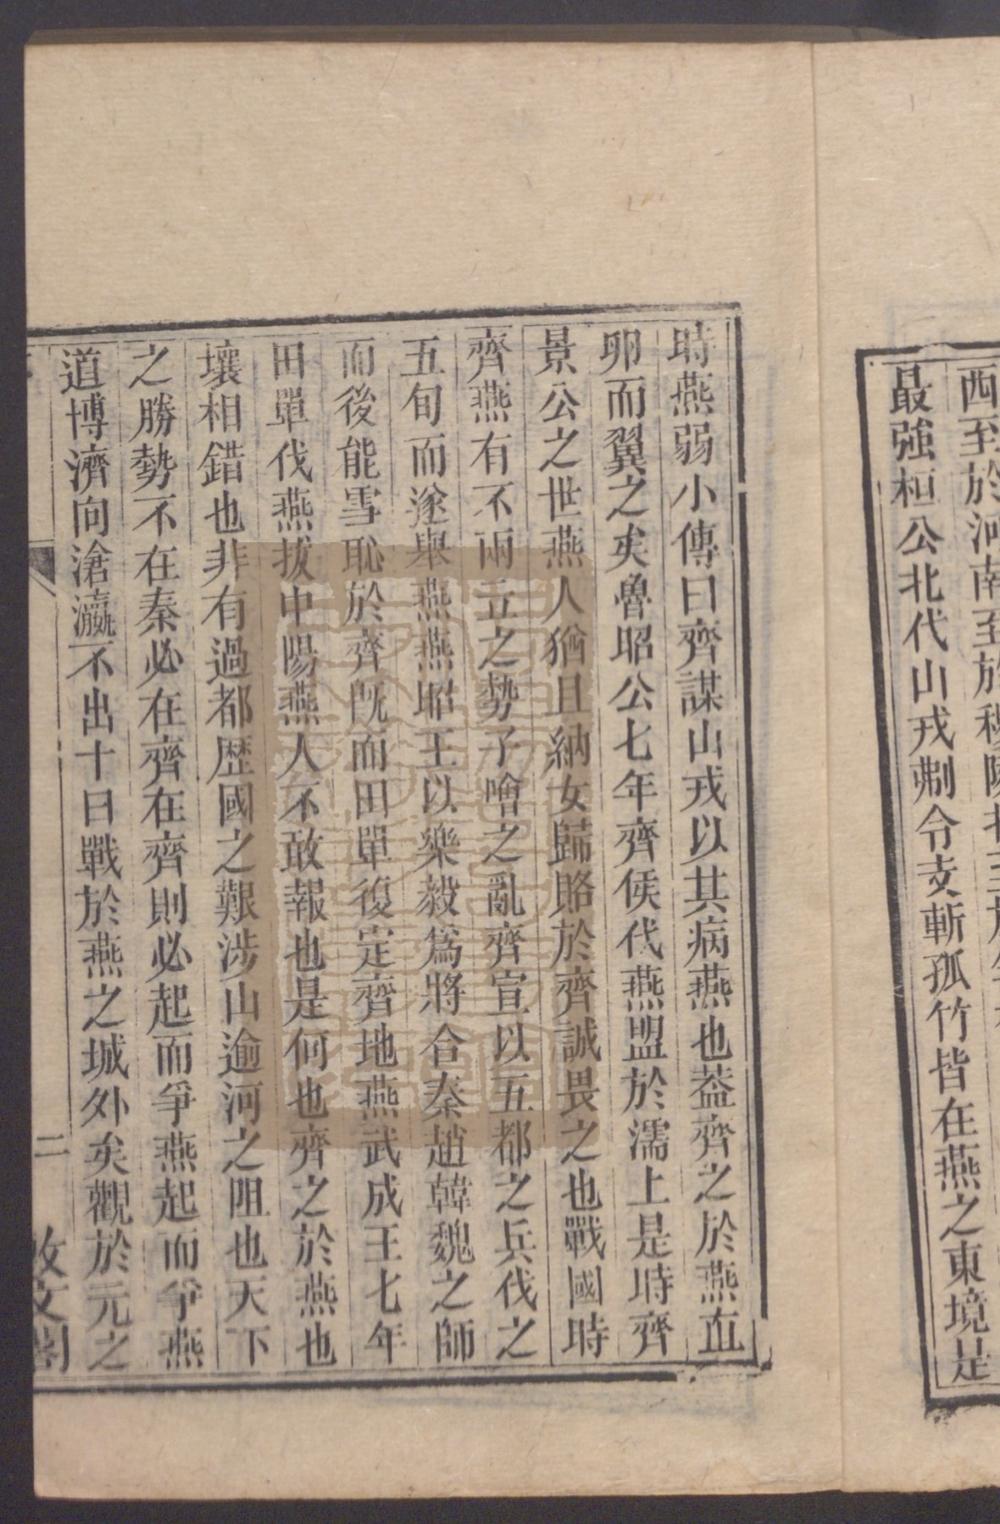 西至於河南至於穆陵
最強桓公北伐山戎𠛬令支斬孤竹皆在燕之東境是
時燕弱小傳曰齊謀山戎以其病燕也葢齊之於燕直
卵而翼之矣魯昭公七年齊侯伐燕盟於濡上是時齊
景公之世燕人猶且納女歸賂於齊誠畏之也戰國時
齊燕有不兩立之勢子噲之亂齊宣以五都之兵伐之
五旬而遂舉燕燕昭王以樂毅爲將合秦趙韓魏之師
而後能雪恥於齊旣而田單復定齊地燕武成王七年
田單伐燕拔中陽燕人不敢報也是何也齊之於燕也
壤相錯也非有過都歷國之艱涉山逾河之阻也天下
之勝勢不在秦必在齊在齊則必起而爭燕起而爭燕
道博濟向滄瀛不出十日戰於燕之城外矣觀於元之
二